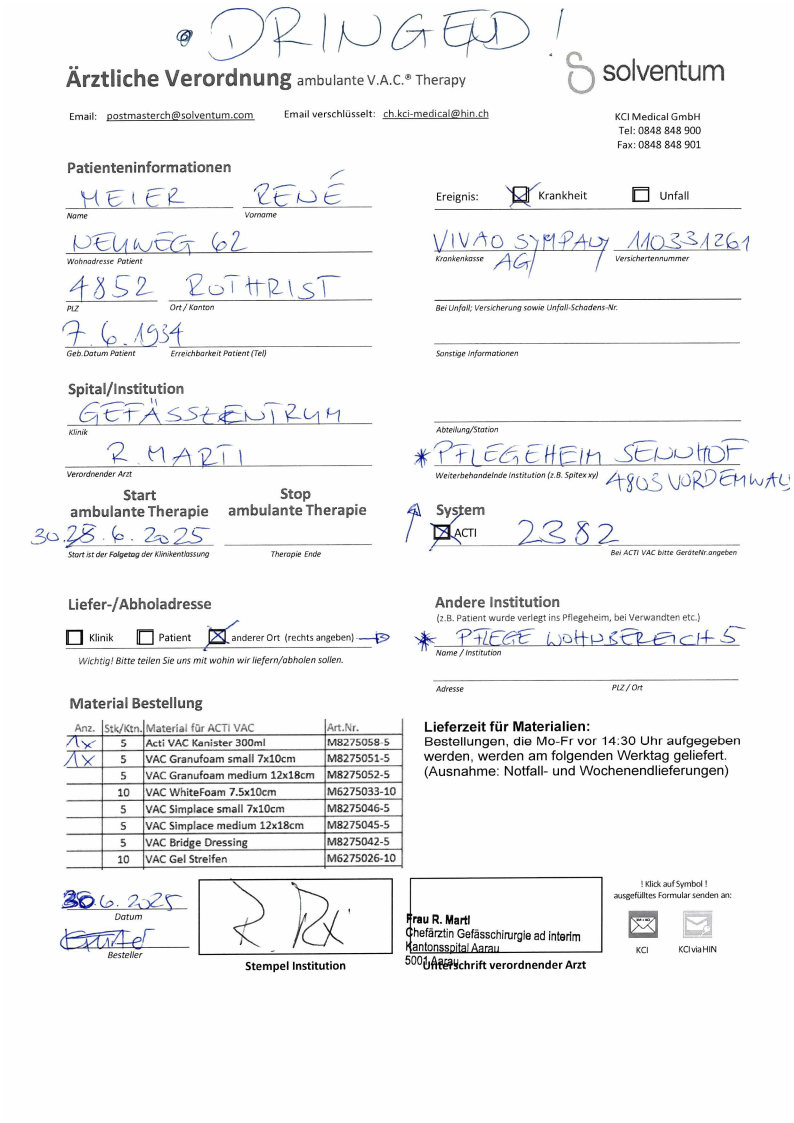 DRINGEND!
Ärztliche Verordnung ambulante V.A.C.® Therapy
solventum
Email: postmasterch@solventum.com Email verschlüsselt: ch.kci-medical@hin.ch
KCI Medical GmbH
Tel: 0848 848 900
Fax: 0848 848 901
Patienteninformationen
MEIER RENÉ
Name Vorname
Ereignis: Krankheit Unfall
NEUWEG 62
Wohnadresse Patient
VIVAO SYMPANY AG 110331261
Krankenkasse Versichertennummer
4852 ROTHRIST
PLZ Ort / Kanton
Bei Unfall; Versicherung sowie Unfall-Schadens-Nr.
7.6.1934
Geb.Datum Patient Erreichbarkeit Patient (Tel)
Sonstige Informationen
Spital/Institution
GEFÄSSZENTRUM
Klinik
Abteilung/Station
R. MARTI
Verordnender Arzt
* PFLEGEHEIM SENNHOF
Weiterbehandelnde Institution (z.B. Spitex xy)
4803 VORDEMWALD
Start ambulante Therapie
Stop ambulante Therapie
30. 6. 2025
Start ist der Folgetag der Klinikentlassung Therapie Ende
System
ACTI 2382
Bei ACTI VAC bitte GeräteNr.angeben
Liefer-/Abholadresse
Klinik Patient anderer Ort (rechts angeben)
Wichtig! Bitte teilen Sie uns mit wohin wir liefern/abholen sollen.
Andere Institution
(z.B. Patient wurde verlegt ins Pflegeheim, bei Verwandten etc.)
* PFLEGE WOHNBEREICH 5
Name / Institution
Adresse PLZ / Ort
Material Bestellung
Anz. Stk/Ktn. Material für ACTI VAC Art.Nr.
1x 5 Acti VAC Kanister 300ml M8275058-5
1x 5 VAC Granufoam small 7x10cm M8275051-5
5 VAC Granufoam medium 12x18cm M8275052-5
10 VAC WhiteFoam 7.5x10cm M6275033-10
5 VAC Simplace small 7x10cm M8275046-5
5 VAC Simplace medium 12x18cm M8275045-5
5 VAC Bridge Dressing M8275042-5
10 VAC Gel Streifen M6275026-10
Lieferzeit für Materialien:
Bestellungen, die Mo-Fr vor 14:30 Uhr aufgegeben
werden, werden am folgenden Werktag geliefert.
(Ausnahme: Notfall- und Wochenendlieferungen)
30.6.2025
Datum
Besteller
Stempel Institution
Frau R. Marti
Chefärztin Gefässchirurgie ad interim
Kantonsspital Aarau
5001 Aarau
Unterschrift verordnender Arzt
! Klick auf Symbol !
ausgefülltes Formular senden an:
KCI KCI via HIN